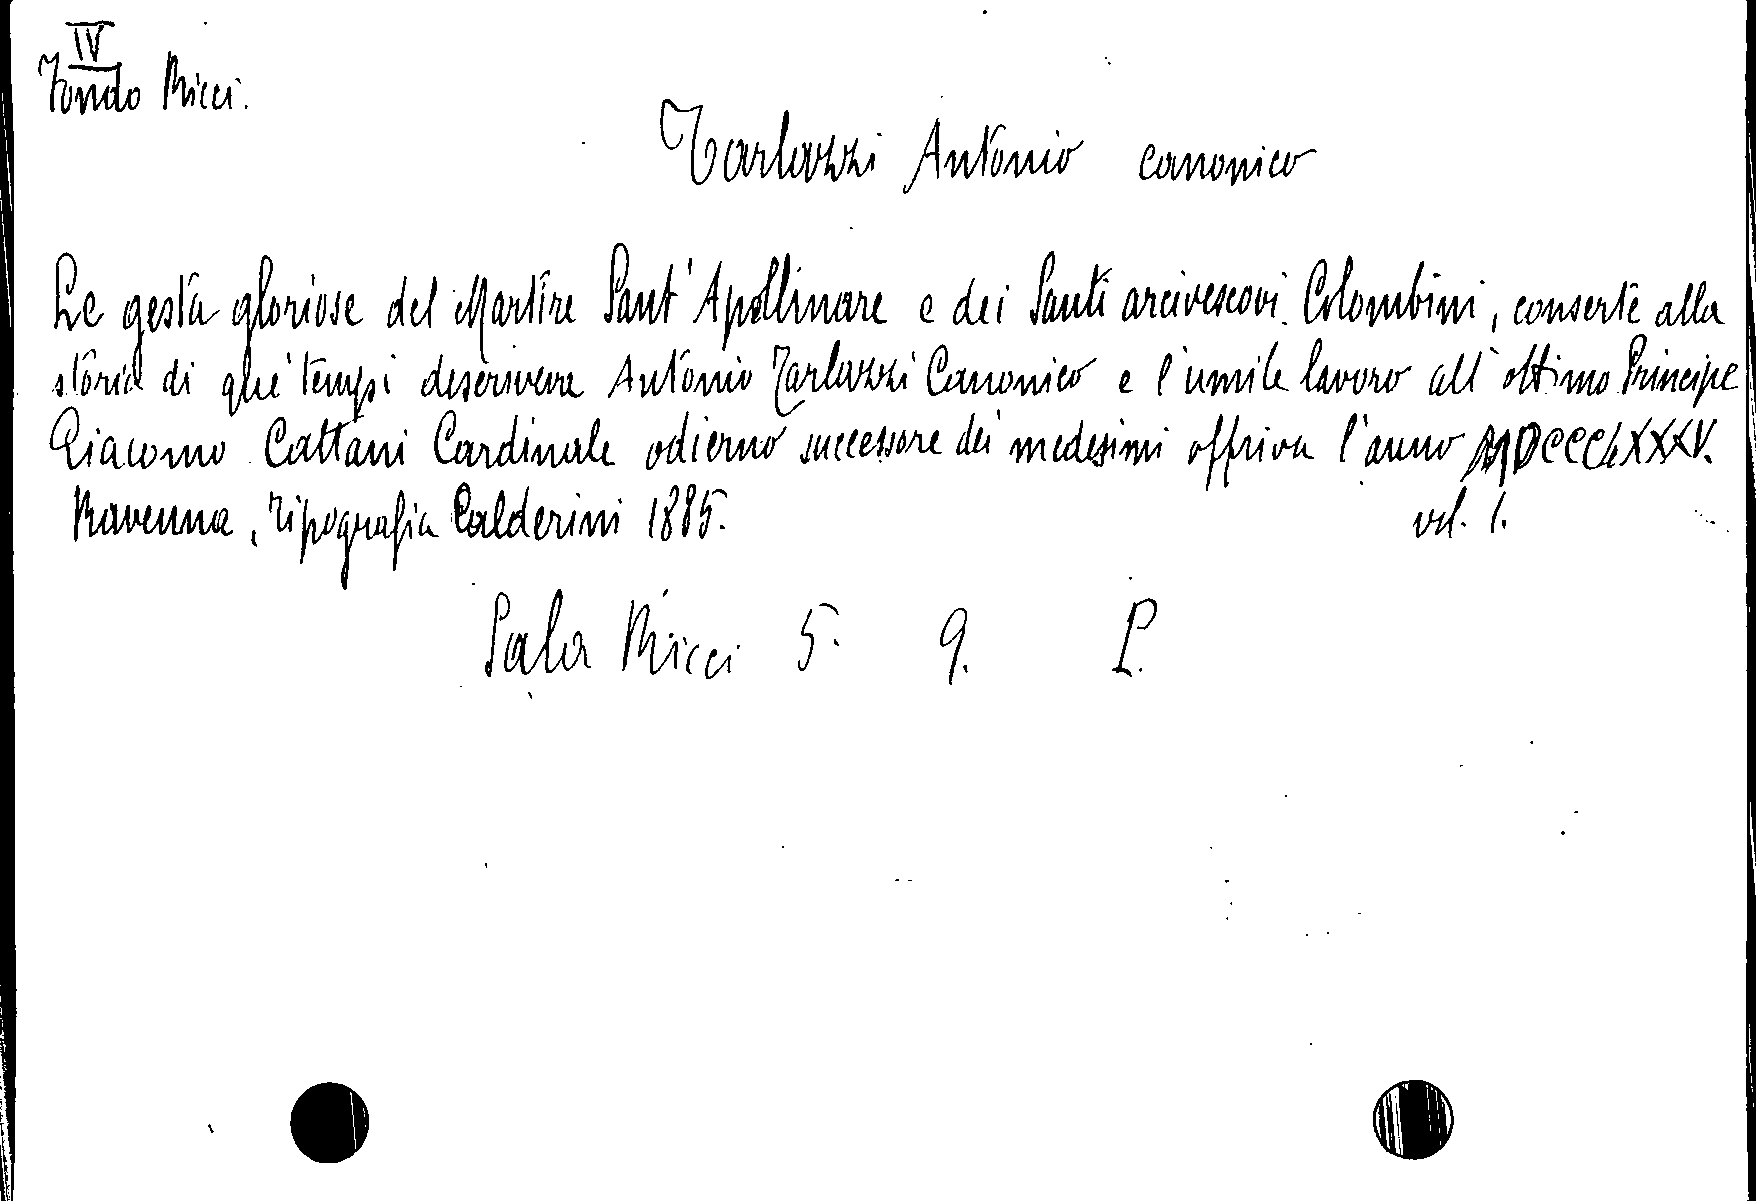 IV
Fondo Ricci.
Tarlazzi Antonio canonico
Le gesta gloriose del Martire Sant' Apollinare e dei Santi arcivescovi Colombini, conserte alla
storia di que' tempi descriveva Antonio Tarlazzi Canonico e l'umile lavoro all' ottimo Principe
Giacomo Cattani Cardinale odierno successore dei medesimi offriva l'anno MDCCCLXXXV.
Ravenna, Tipografia Calderini 1885. vol. 1.
Sala Ricci 5. 9. P.